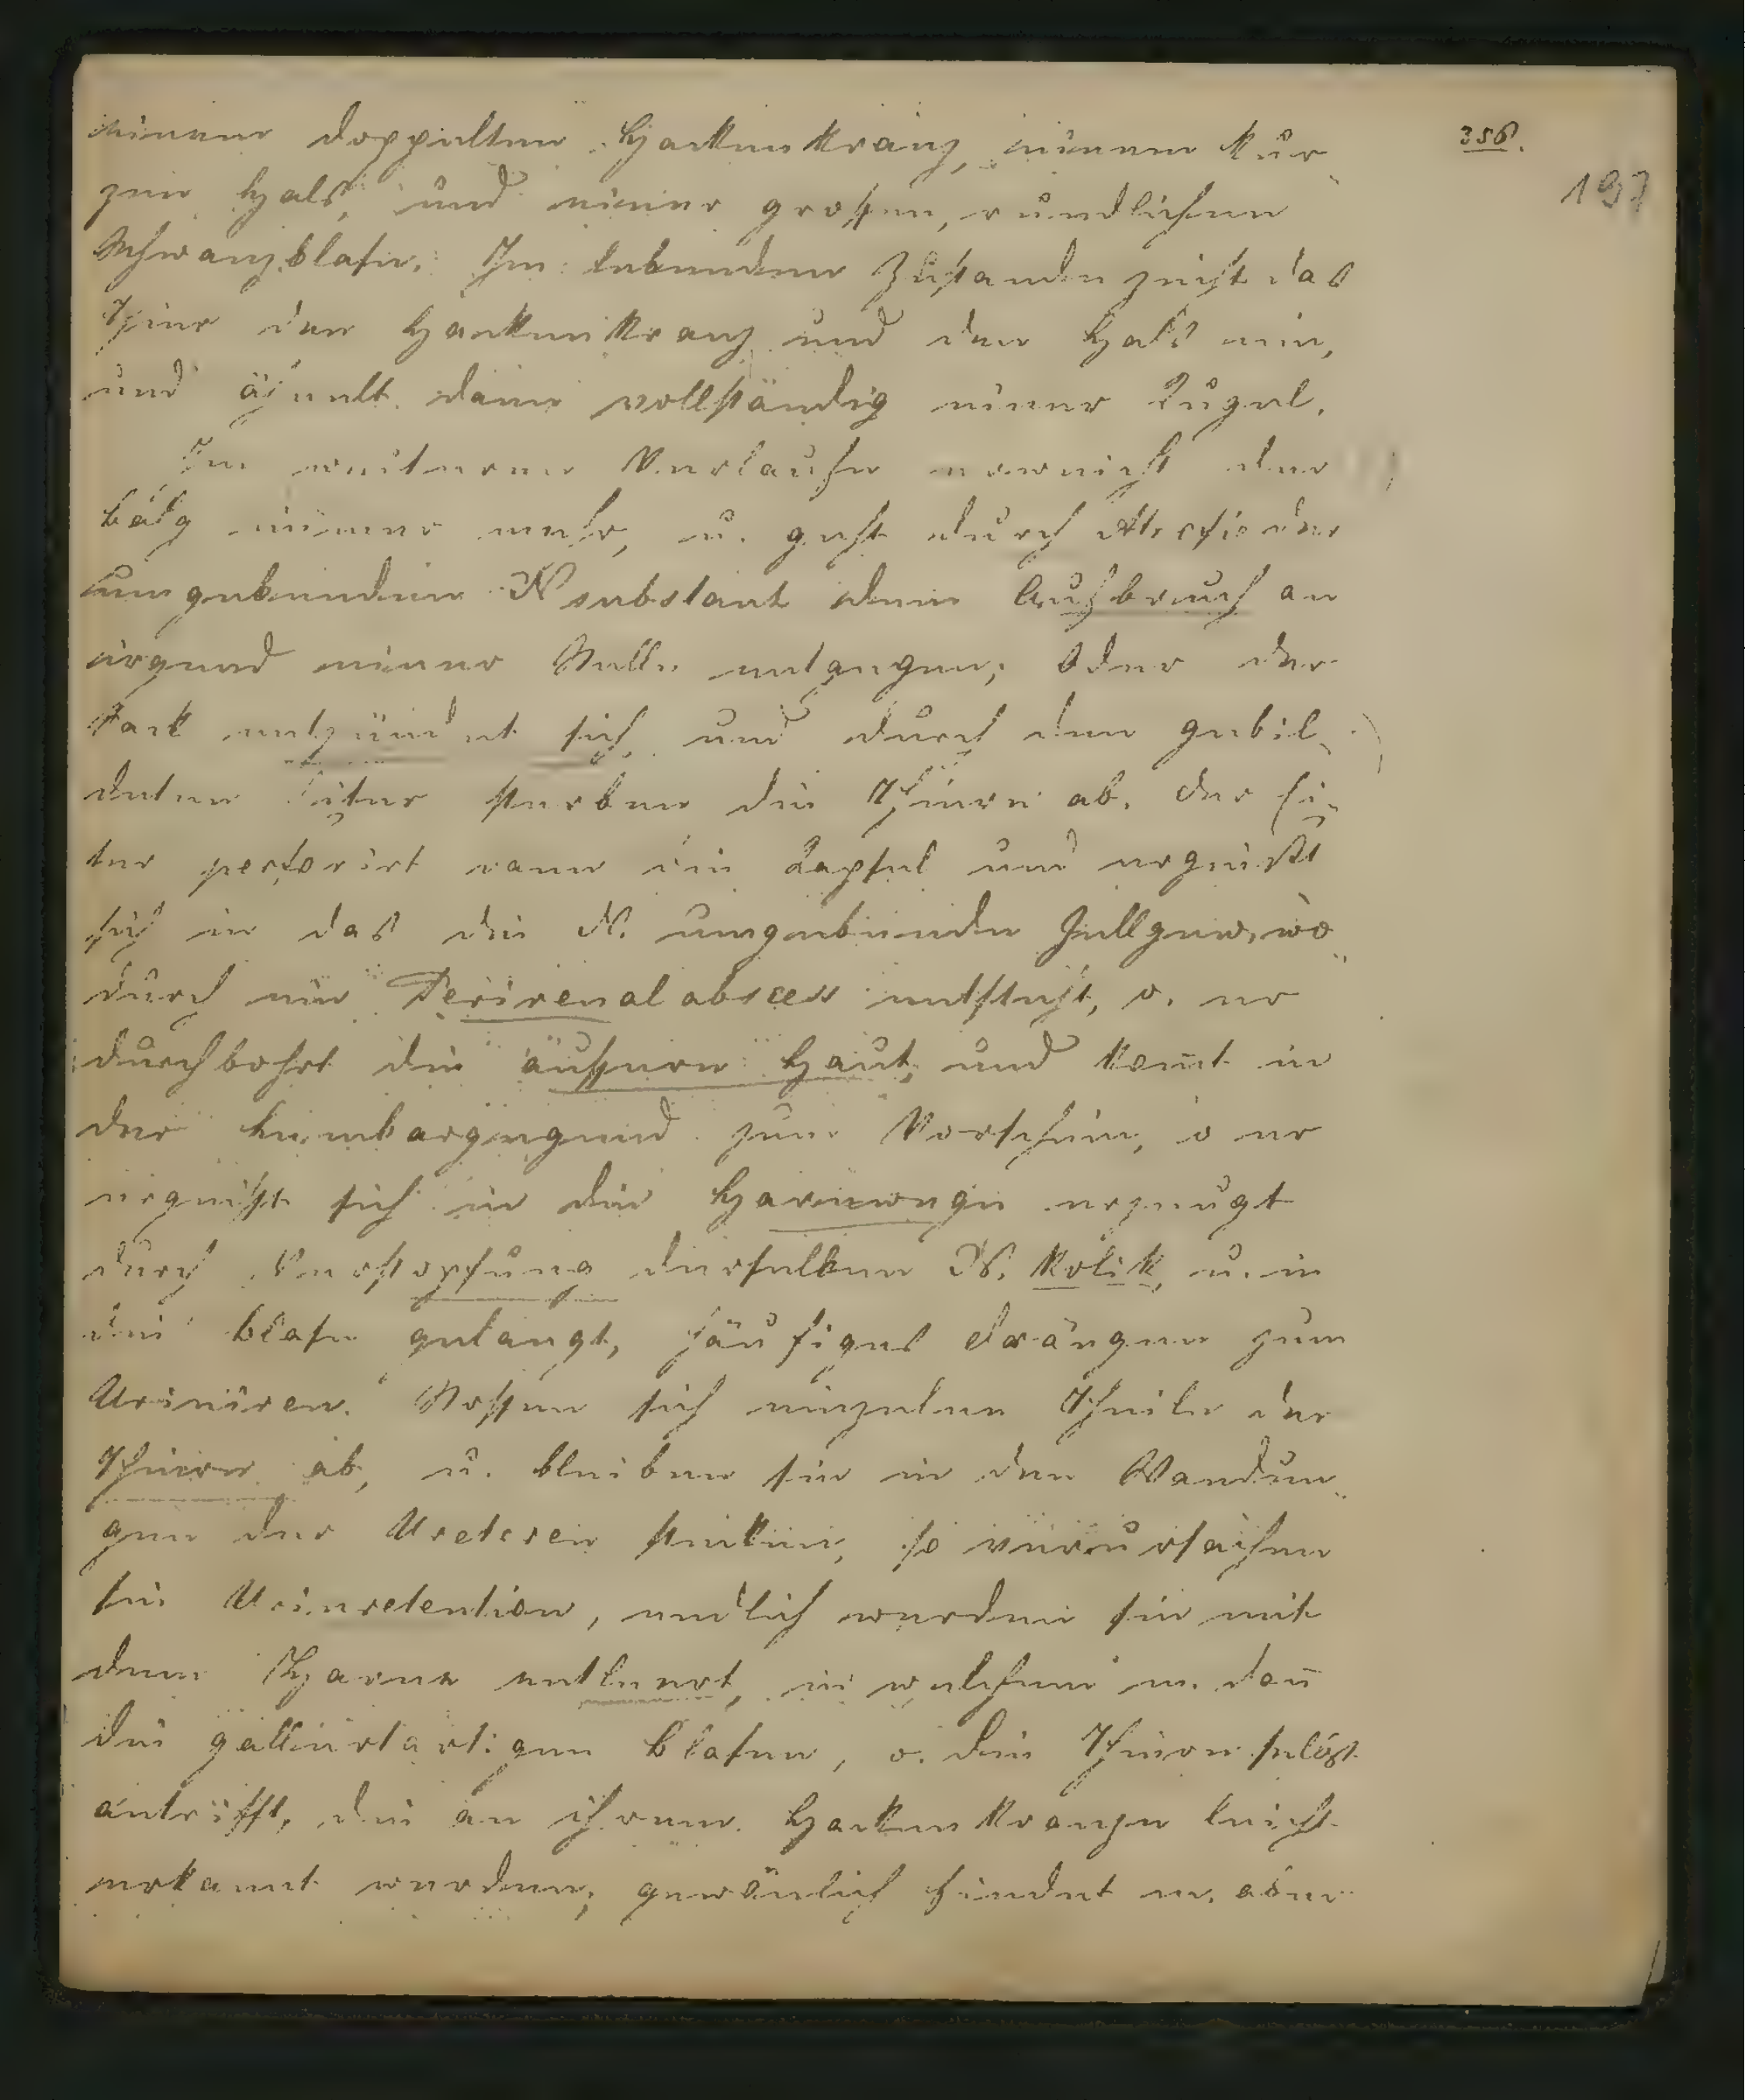 356.
197
einem doppelten Hackenkranz, einem kur-
zen Hals, und einer großen, rundlichen
Schwanzblase. Im lebenden Zustande zieht das
Thier den Hackenkranz und den Hals ein,
und änelt dann vollständig einer Kugel.
Im weiteren Verlaufe erweicht der
Balg immer mehr, u. geht durch Atrofie der
umgebenden N substant dem Aufbruch an
irgend einer Stelle entgegen; Oder der
Sack entzündet sich, und durch den gebil-
deten Eiter sterben die Thiere ab. Der Ei-
ter perforirt dann die Kapsel und ergießt
sich in das die N. umgebende Zellgew, wo-
durch ein Perirenalabscess entsteht, o. er
durchbohrt die äußere Haut, und kom̄t in
der Lumbargegend zum Vorschein, o er
ergießt sich in die Harnwege erzeugt
durch Verstopfung derselben N. Kolik, u. in
die Blase gelangt, häufiges drängen zum
Uriniren. Stoßen sich einzelne Theile der
Thiere ab, u. bleiben sie in den Wandun-
gen der Ureteren stecken, so verursachen
sie Urinretention, endlich werden sie mit
dem Harne entleert, in welchem m. dan̄
die gallertartigen Blasen, o. die Thiere selbst
antrifft, die an ihrem Hackenkranze leicht
erkannt werden; gewönlich findet m. aber